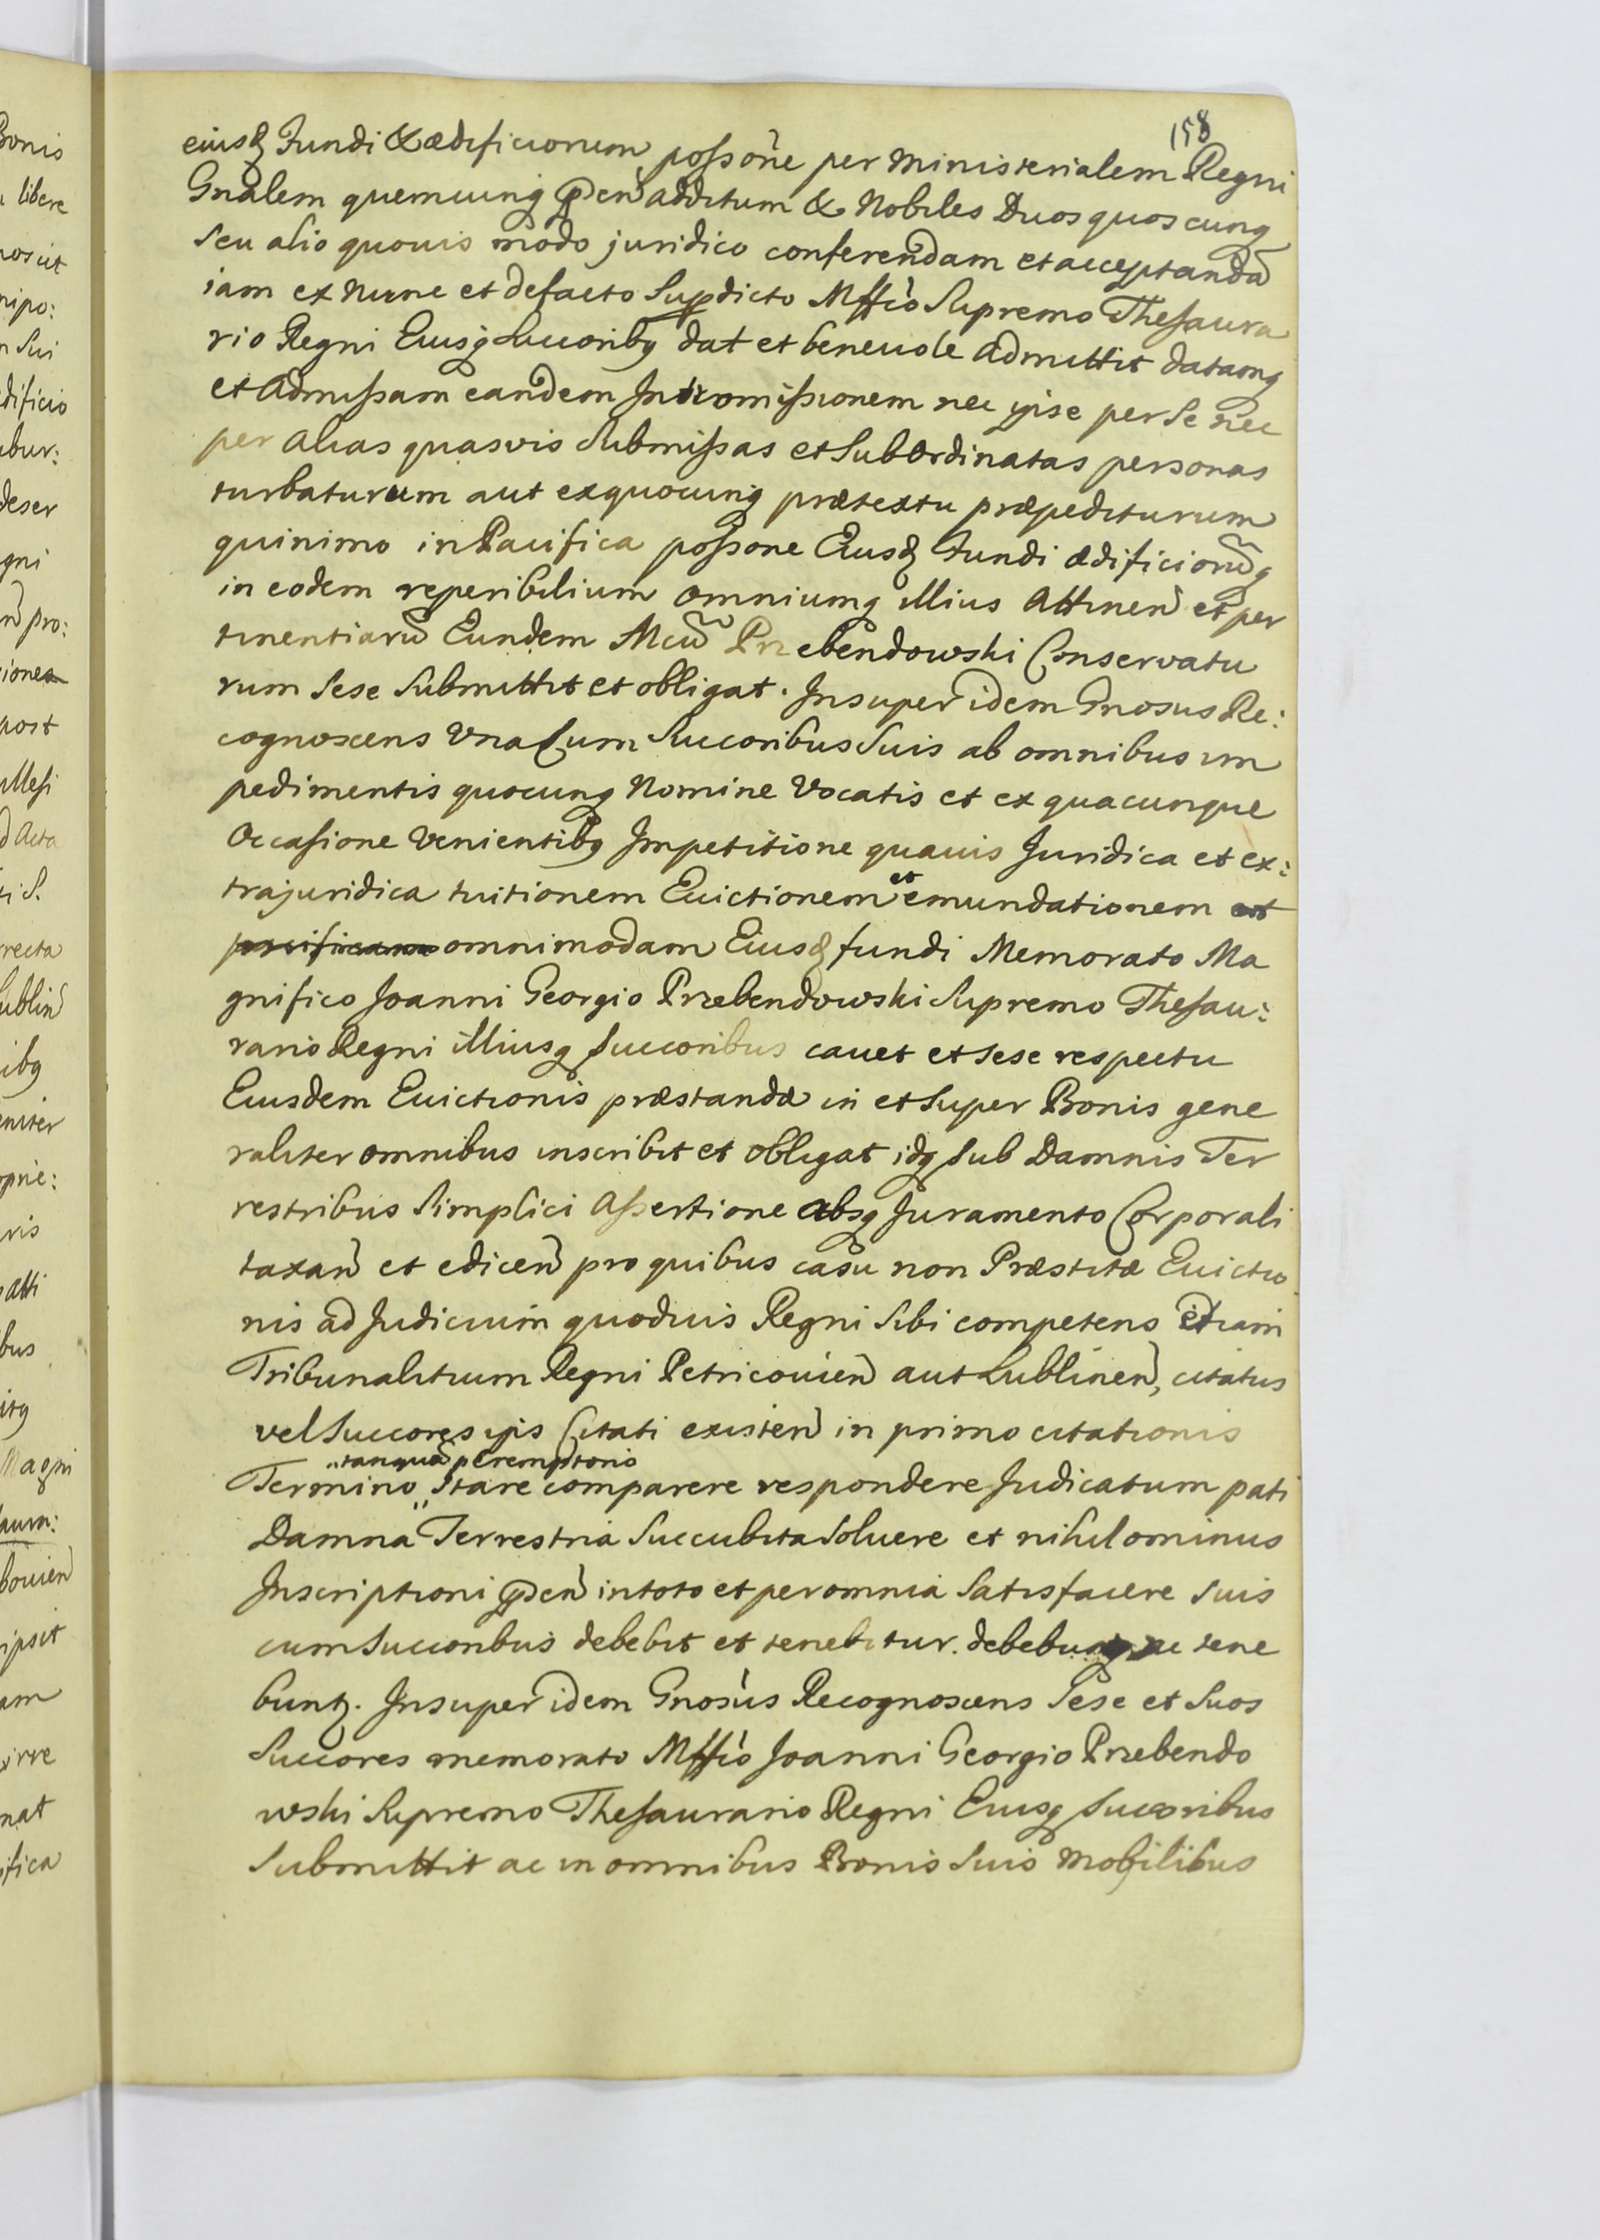 158
eiusd Fundi & ædificiorum possone per ministerialem Regni
Gnalem quemcunq pñ additum & Nobiles Duos quoscunq
seu alio quovis modo juridico conferendam et acceptandã
iam ex nunc et defacto Supradicto Mffco Supremo Thesaura
rio Regni Eiusq Succoribq dat et beneuole admittit datamq
et admissam eandem Intromissionem nec ipse per se nec
per alias quasvis Submissas et Subordinatas personas
turbaturum aut exquocunq prætextu præpediturum
quinimo in Pacifica possone Eiusd Fundi ædificiorũq
in eodem reperibilium omniumq illius Attinen et per
tinentiarũ Eundem Mcũ Przebendowski Conservatu
rum sese submittit et obligat. Insuper idem Gnosus Re:
cognoscens Una Cum Succoribus Suis ab omnibus im
pedimentis quocunq Nomine Vocatis et ex quacunque
Occasione Venientibq Impetitione quauis Juridica et ex:
trajuridica tuitionem Euictionem et emundationem et
pacificam omnimodam Eiusd fundi Memorato Ma
gnifico Joanni Georgio Przebendowski Supremo Thesau:
rario Regni illiusq Succoribus cauet et sese respectu
Eiusdem Euictionis præstandæ in et super Bonis gene
raliter omnibus inscribit et obligat idq sub Damnis Ter
restribus Simplici Assertione absq Juramento Corporali
taxan et edicen pro quibus casu non Præstitæ Euictio
nis ad Judicium quoduis Regni sibi competens etiam
Tribunalitium Regni Petricouien aut Lublinen, citatus
vel Succores ipis Citati existen in primo citationis
„tanquã peremptorio
Termino „ Stare comparere respondere Judicatum pati
Damna Terrestria Succubita Soluere et nihilominus
Inscriptioni pñ in toto et per omnia Satisfacere suis
cum Succoribus debebit et tenebitur. debebuntq ac tene
buntq. Insuper idem Gnosus Recognoscens Sese et Suos
Succores memorato Mffco Joanni Georgio Przebendo
wski Supremo Thesaurario Regni Eiusq Succoribus
Submittit ac in omnibus Bonis Suis Mobilibus